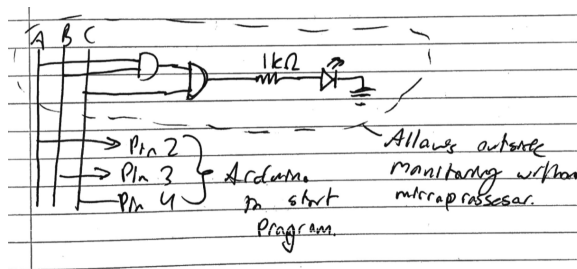 A B C
1kΩ
Pin 2
Pin 3
Pin 4
Arduino
to start
Program.
Allows outside
monitoring without
micraprassesar.